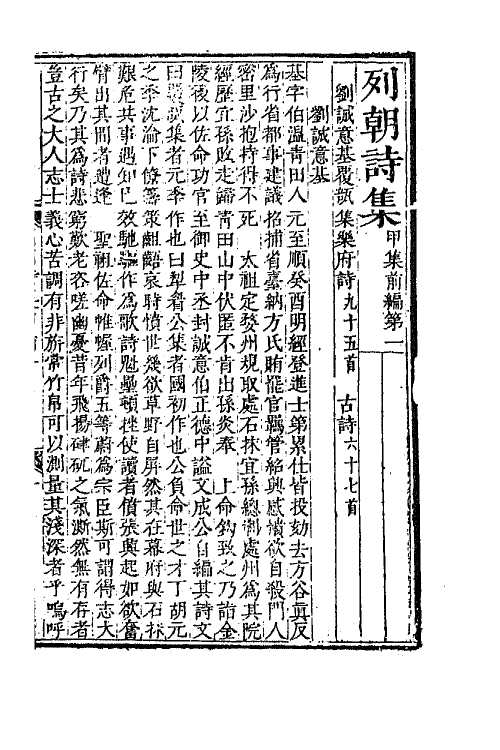 列朝詩集 甲集前編第一
劉誠意基覆瓿集樂府詩九十五首 古詩六十七首
劉誠意基
基字伯溫青田人元至順癸酉明經登進士第累仕皆投劾去方谷眞反
爲行省都事建議招捕省臺納方氏賄罷官羈管紹興感憤欲自殺門人
密里沙抱持得不死 太祖定婺州規取處石抹宜孫總制處州爲其院
經歷宜孫敗走歸青田山中伏匿不肯出孫炎奉 上命鈎致之乃詣金
陵後以佐命功官至御史中丞封誠意伯正德中諡文成公自編其詩文
曰覆瓿集者元季作也曰犁眉公集者國初作也公負命世之才丁胡元
之季沈淪下僚籌策齟齬哀時憤世幾欲草野自屏然其在幕府與石抹
艱危共事遇知己效馳驅作爲歌詩魁壘頓挫使讀者僨張興起如欲奮
臂出其間者遭逢 聖祖佐命帷幄列爵五等蔚爲宗臣斯可謂得志大
行矣乃其爲詩悲窮歎老咨嗟幽憂昔年飛揚硉矹之氣澌然無有存者
豈古之大人志士義心苦調有非旂常竹帛可以測量其淺深者乎嗚呼